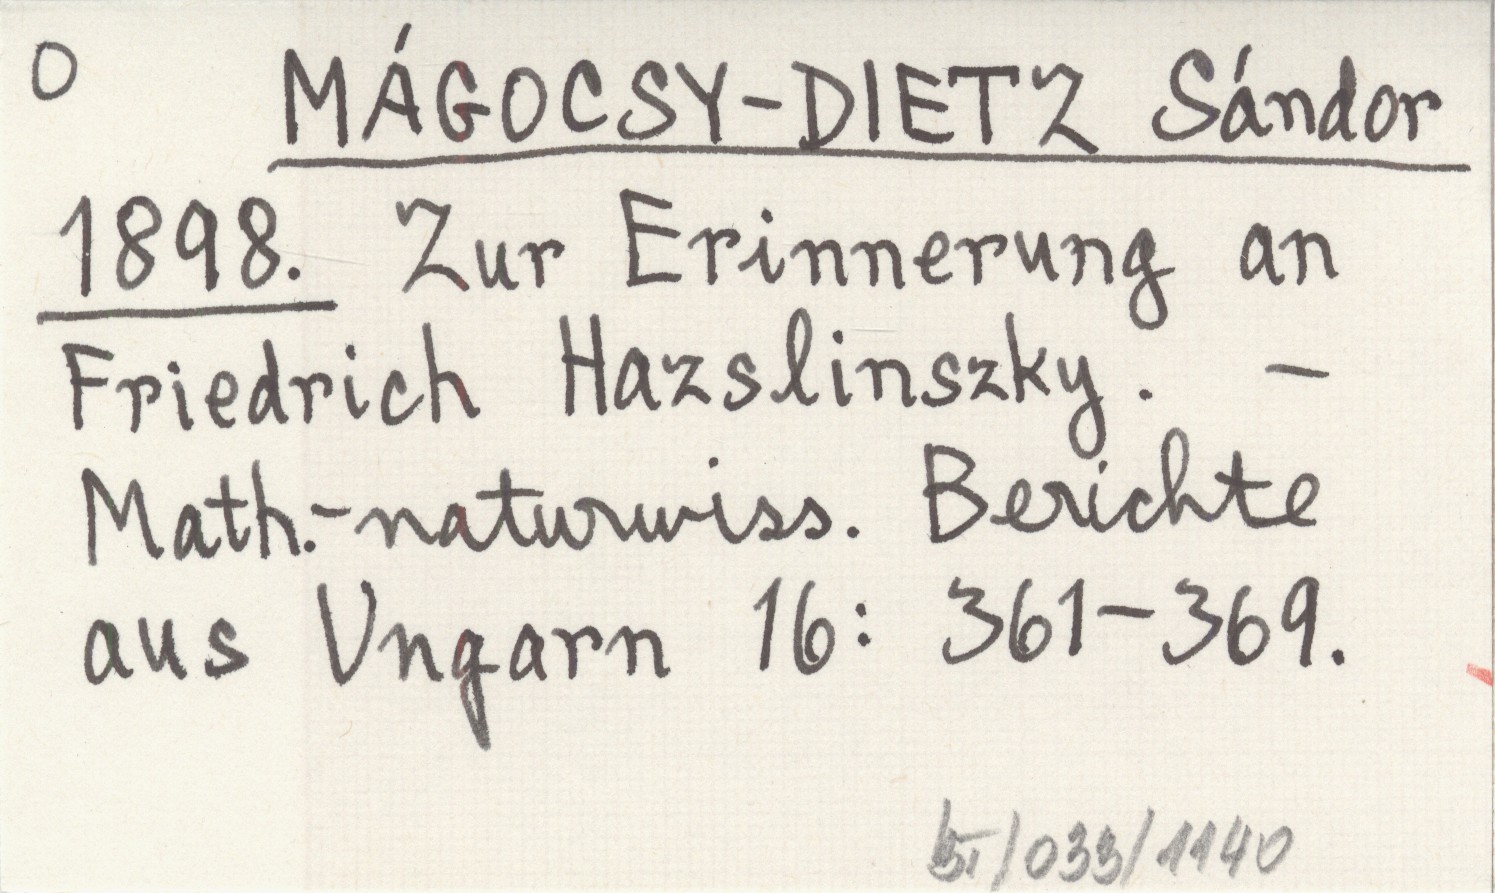 O MÁGOCSY-DIETZ Sándor
1898. Zur Erinnerung an
Friedrich Hazslinszky. -
Math.-naturwiss. Berichte
aus Ungarn 16: 361-369.
/033/1140